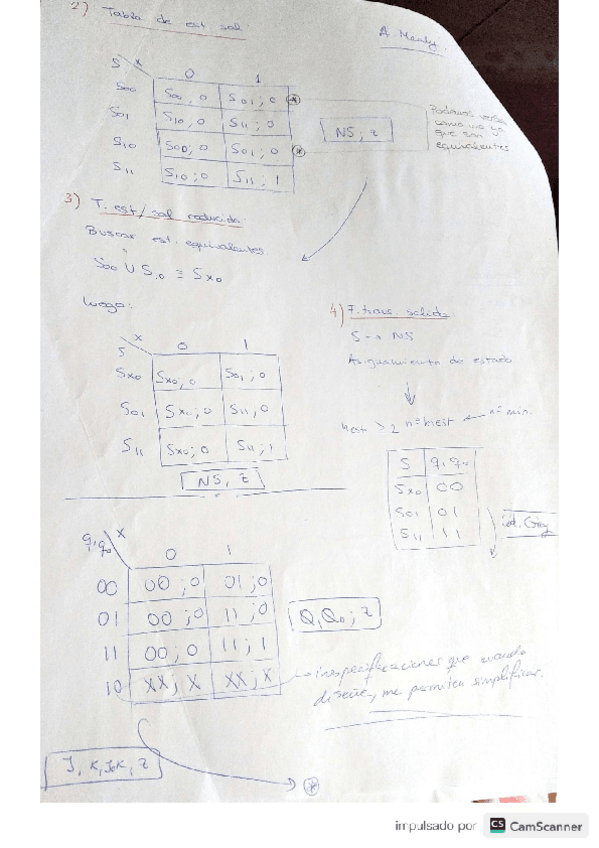 2) Tabla de est sal.
A. Mealy.
S x 0 1
S00 S00, 0 S01; 0
S01 S10, 0 S11; 0
S10 S00; 0 S01; 0
S11 S10; 0 S11; 1
NS; z
Podemos verlos
como uno ya
que son
equivalentes
3) T. est/sal reducida
Buscar est. equivalentes
S00 U S10 ≡ Sx0
Luego:
S x 0 1
Sx0 Sx0, 0 S01; 0
S01 Sx0; 0 S11, 0
S11 Sx0; 0 S11; 1
NS, z
4) T. trans salida
S → NS
Asignamiento de estado
n = min.
S q1 q0
Sx0 00
S01 01
S11 11
cod. Gray
q1q0 x 0 1
00 00; 0 01; 0
01 00; 0 11; 0
11 00; 0 11; 1
10 XX; X XX; X
Q1Q0; z
inespecificaciones que cuando
diseñe, me permiten simplificar.
impulsado por CS CamScanner